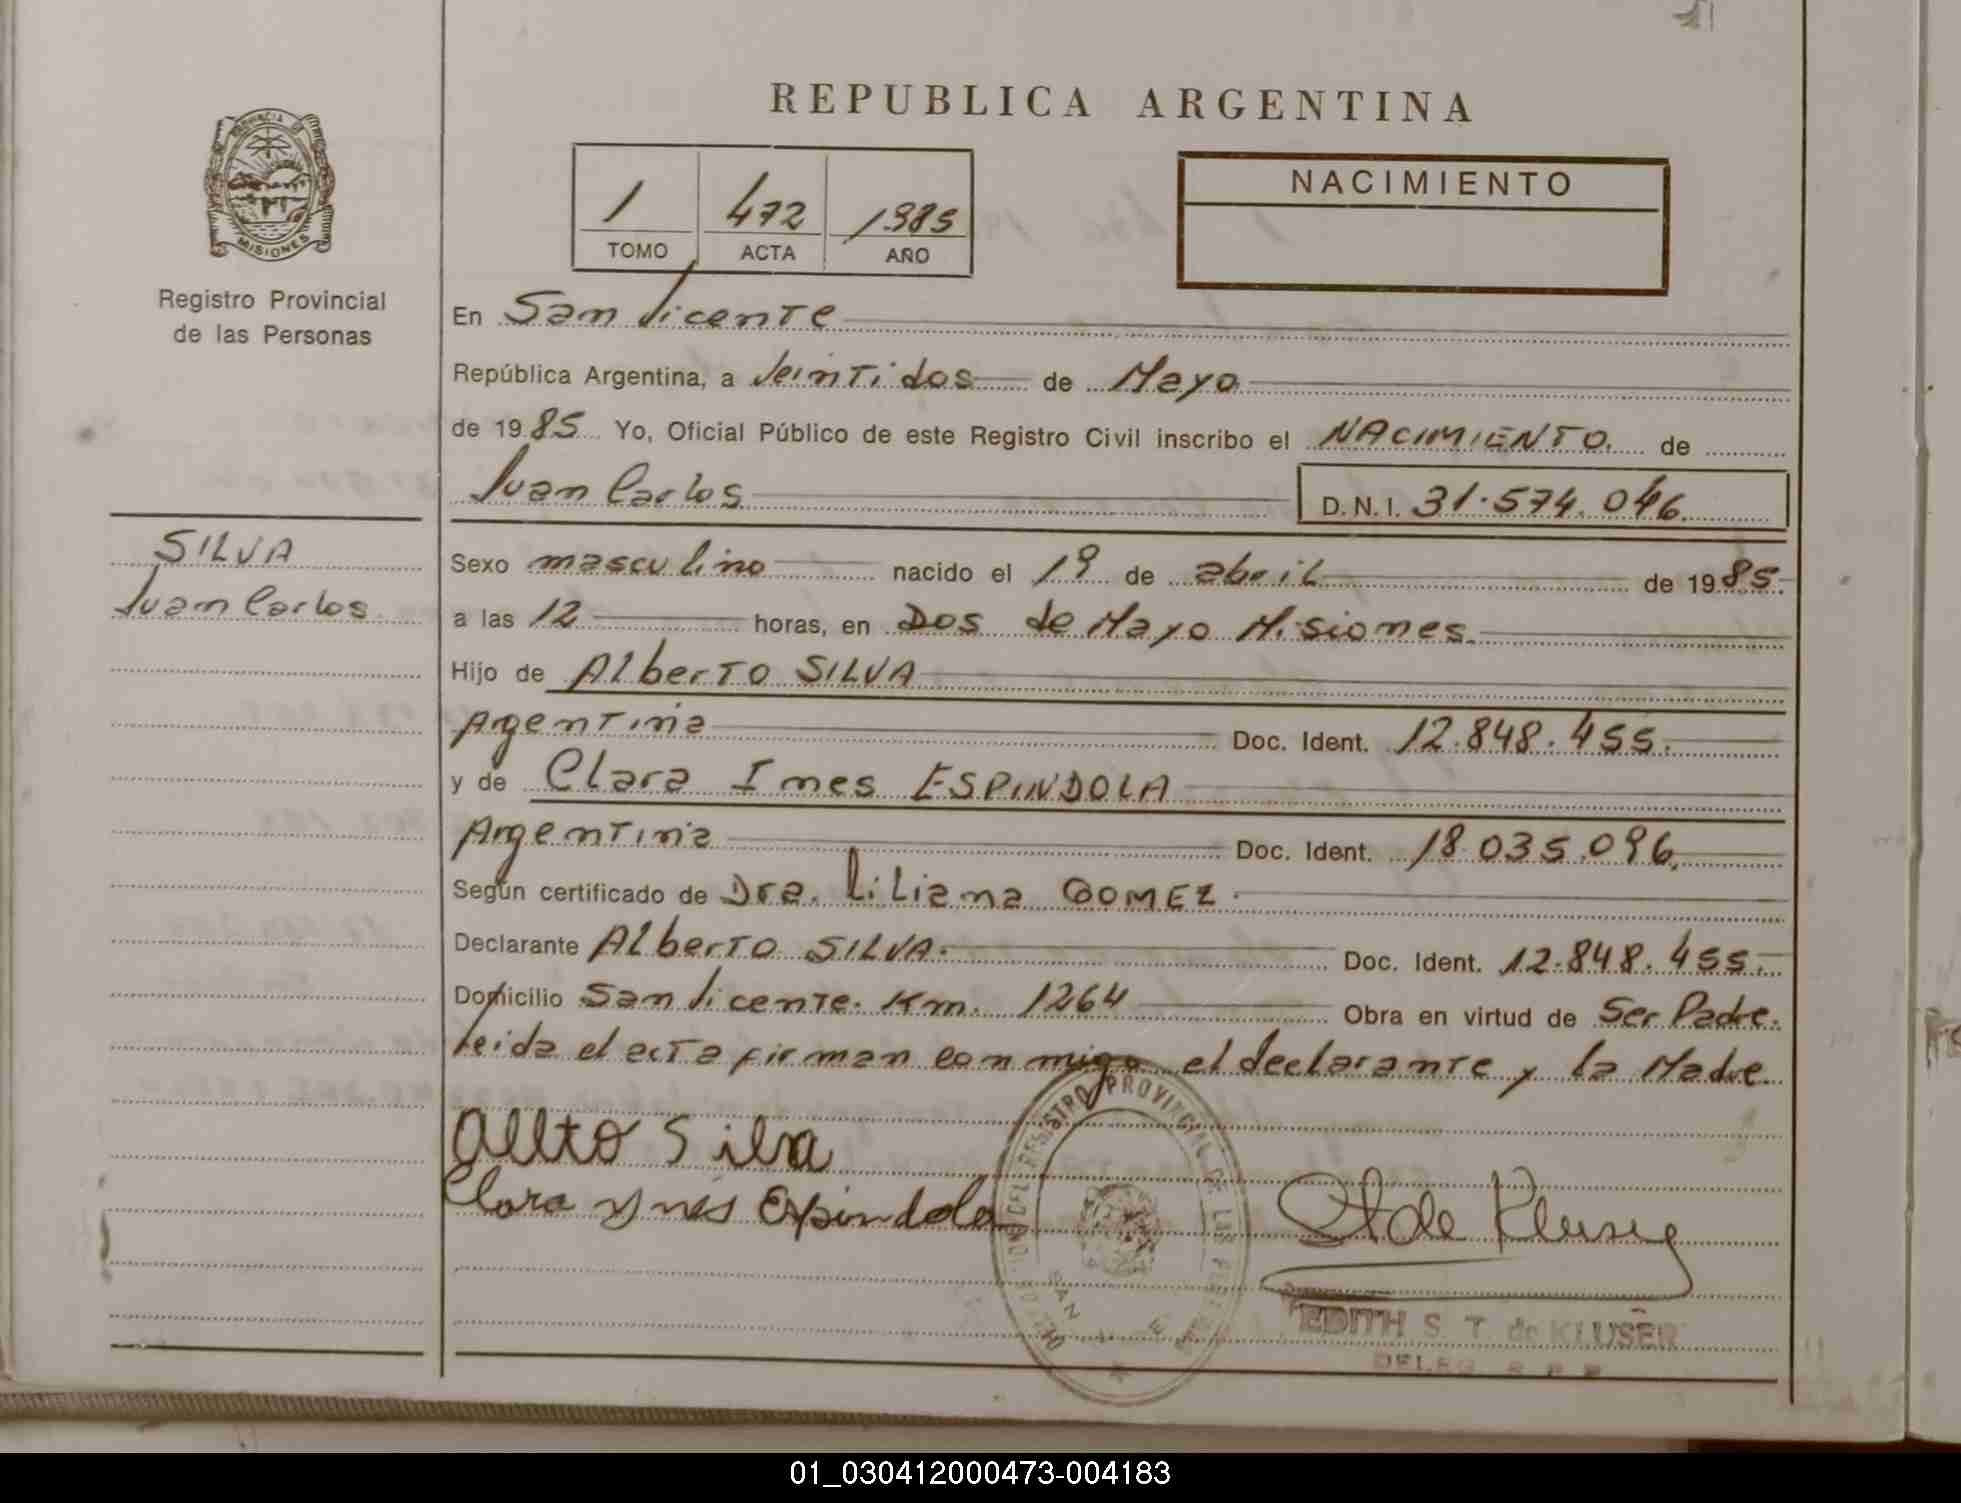 REPUBLICA ARGENTINA
PROVINCIA DE
MISIONES
Registro Provincial
de las Personas
1 472 1985
TOMO ACTA AÑO
NACIMIENTO
En San Vicente
República Argentina, a Veintidos de Mayo
de 1985 Yo, Oficial Público de este Registro Civil inscribo el NACIMIENTO. de
Juan Carlos
D. N. I. 31.574.046.
SILVA
Juan Carlos
Sexo masculino nacido el 19 de abril de 1985.
a las 12 horas, en Dos de Mayo Misiones.
Hijo de Alberto SILVA
Argentina Doc. Ident. 12.848.455.
y de Clara Ines ESPINDOLA
Argentina Doc. Ident. 18.035.096.
Según certificado de Dra. Liliana GOMEZ.
Declarante Alberto SILVA. Doc. Ident. 12.848.455.
Domicilio San Vicente. Km. 1264 Obra en virtud de Ser Padre.
Leida el acta firman conmigo el declarante y la Madre.
Silva
Clara Ynes Espindola
DEL REGISTRO PROVINCIAL DE LAS
SAN
de Kluser
EDITH S. T. de KLUSER
DELEG. R P P
01_030412000473-004183